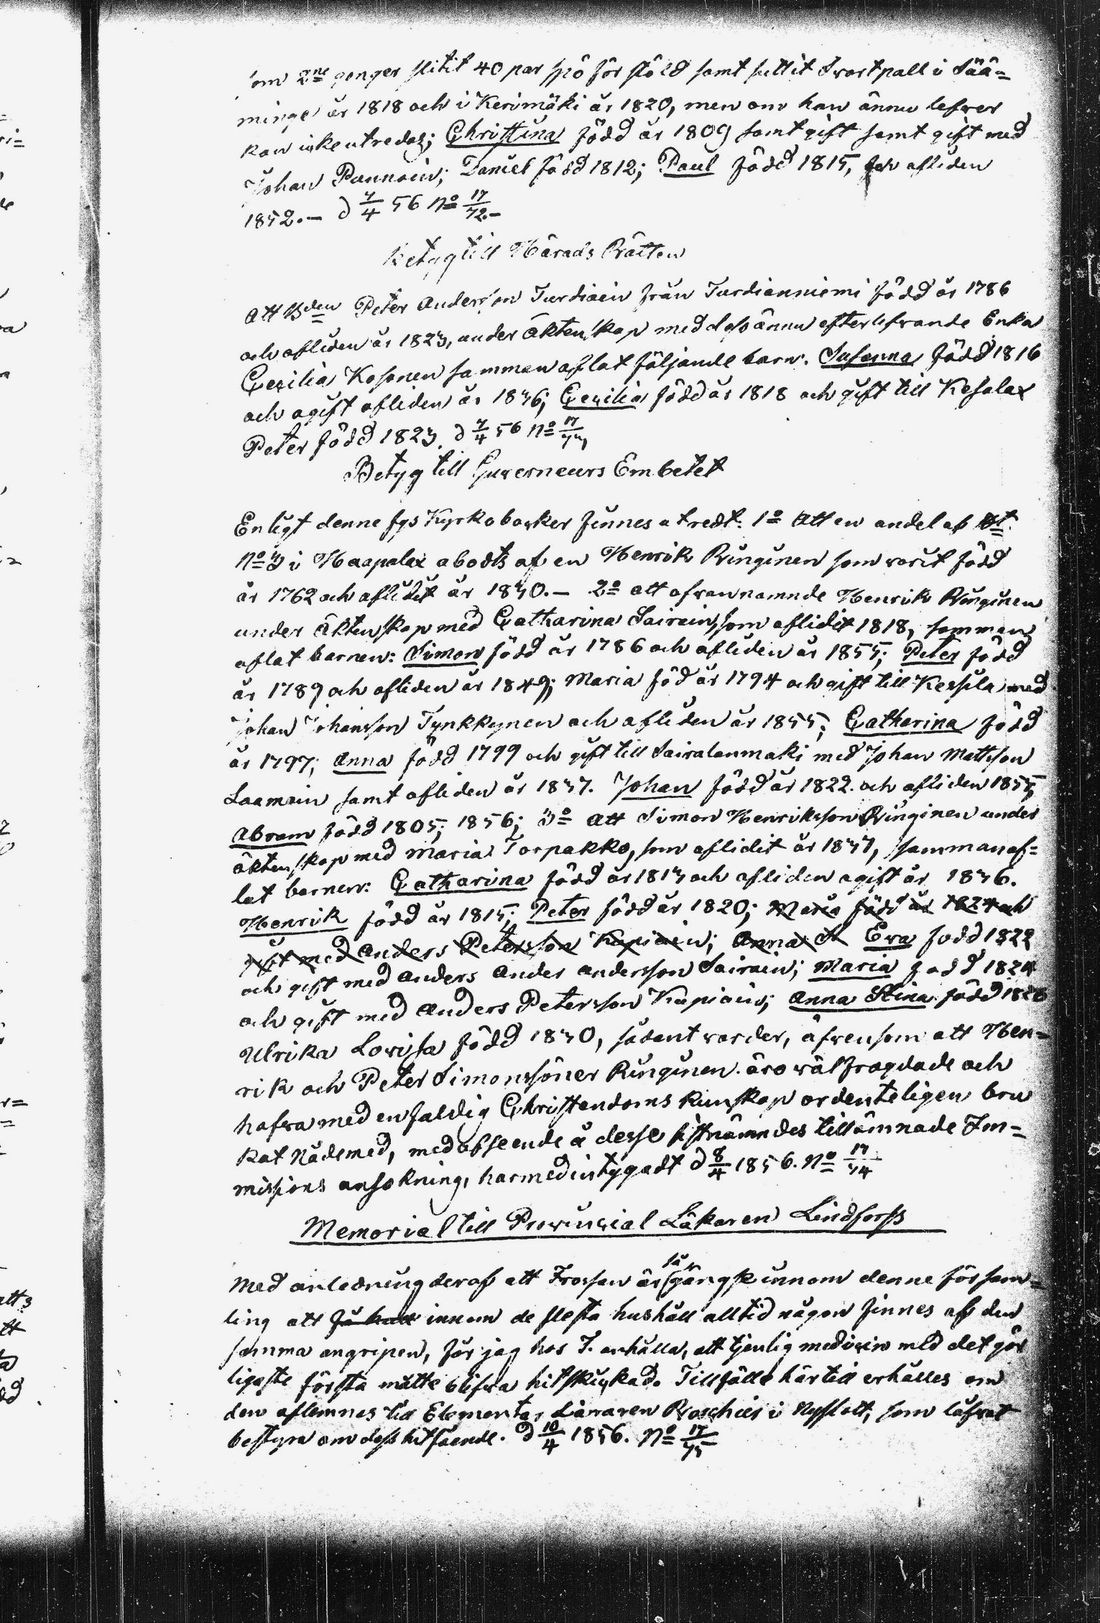 om 2ne gonger slitit 40 par spö för stöld samt suttit Svartpall i Sää=
minge år 1818 och i Kerimäki år 1820, men om han ännu lefver
kan icke utredas; Christina född år 1809 samt gift samt gift med
Johan Punnoin; Daniel född 1812; Paul född 1815, afliden
1852.— d 7/4 56 No 17/72.—
Betyg till Härads Rätten
Att Bden Peter Andersson Turdiain från Turdianniemi född år 1786
och afliden år 1823, under äktenskap med dess ännu efterlefvande Enka
Cecilia Kosonen sammanaflat följande barn. Susanna född 1816
och ogift afliden år 1836; Cecilia född år 1818 och gift till Kesalax
Peter född 1823. d 7/4 56 No 17/73
Betyg till Guverneurs Embetet
Enligt denne fgs Kyrkoböcker finnes utredt. 1o Att en andel af
No 3 i Haapalax abodts af en Henrik Ringinen som varit född
år 1762 och aflidit år 1830.— 2o att ofvannamnde Henrik Ringinen
under äktenskap med Catharina Sairain, som aflidit 1818, samman
aflat barnen: Simon född år 1786 och afliden år 1855; Peter född
år 1789 och afliden år 1849; Maria föd år 1794 och gift till Kessila med
Johan Johansson Tynkkynen och afliden år 1855; Catharina född
år 1797; Anna född 1799 och gift till Sairalanmaki med Johan Mattsson
Laamain samt afliden år 1837. Johan född år 1822. och afliden 1855,
Abram född 1805; 1856; 3o Att Simon Henriksson Ringinen under
äktenskap med Maria Torpakko, som aflidit år 1837, sammanaf=
lat barnen: Catharina född år 1813 och afliden ogift år 1836.
Henrik född år 1815; Peter född år 1820; Maria född år 1824 och
gift med Anders Petersson Kapiain; Anna St Eva född 1822
och gift med Anders Ander Andersson Sairain; Maria född 1824
och gift med Anders Petersson Kapiain; Anna Stina född 1826
Ulrika Lovisa född 1830, sådant varder, äfvensom att Hen=
rik och Peter Simonssöner Ringinen äro välfrägdade och
hafva med enfaldig Christendoms kunskap ordenteligen bru
kat Nådemed, med afseende å desse sistnämndes tillämnade Im=
missions ansökning, harmed intygadt d 8/4 1856. No 17/74
Memorial till Provincial Läkaren Lindforss
Med anledning deraf att Frossan är så gängse innom denne försam=
ling att få hus innom de flesta hushåll alltid någon finnes af den
samma angripen, får jag hos T. anhålla, att tjenlig medicin med det gör
ligaste första måtte blifva hitskickad. Tillfälle härtill erhålles om
den aflemnas till Elementar Läraren Roschier i Nyslott, som lofvat
bestyra om dess hitsände. d 10/4 1856. No 17/75